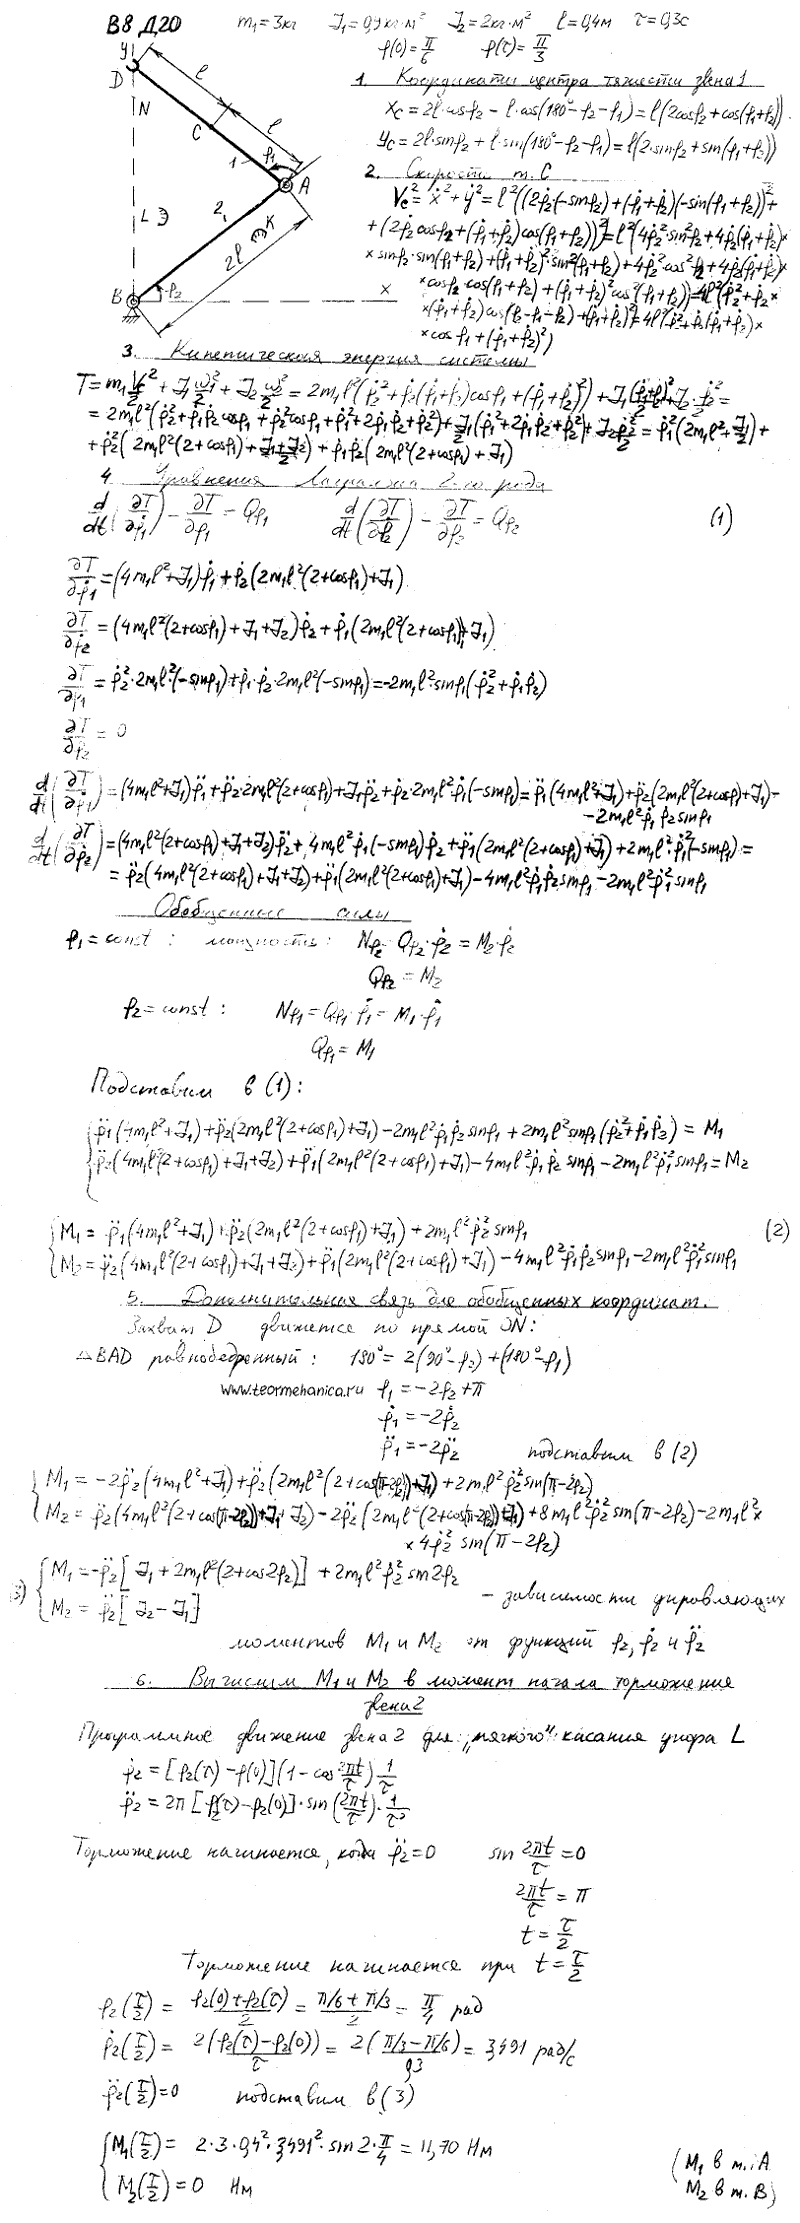 В8 Д20 m₁=3кг J₁=0,9кг·м² J₂=2кг·м² l=0,4м τ=0,3с
φ(0)=π/6 φ(τ)=π/3
y
D
N
l
C
l
1
φ₁
A
2
L Э
K
2l
B
φ₂
x
1. Координаты центра тяжести звена 1
Xc = 2l·cosφ₂ − l·cos(180°−φ₂−φ₁) = l(2cosφ₂+cos(φ₁+φ₂))
Yc = 2l·sinφ₂ + l·sin(180°−φ₂−φ₁) = l(2·sinφ₂+sin(φ₁+φ₂))
2. Скорость т. C
Vc² = ẋ²+ẏ² = l²((2φ̇₂(−sinφ₂)+(φ̇₁+φ̇₂)(−sin(φ₁+φ₂))²+
+(2φ̇₂cosφ₂+(φ̇₁+φ̇₂)cos(φ₁+φ₂))²)=l²(4φ̇₂²sin²φ₂+4φ̇₂(φ̇₁+φ̇₂)×
×sinφ₂·sin(φ₁+φ₂)+(φ̇₁+φ̇₂)²·sin²(φ₁+φ₂)+4φ̇₂²cos²φ₂+4φ̇₂(φ̇₁+φ̇₂)×
×cosφ₂·cos(φ₁+φ₂)+(φ̇₁+φ̇₂)²cos²(φ₁+φ₂))=4l²(φ̇₂²+φ̇₂×
×(φ̇₁+φ̇₂)cos(φ₂−φ₁−φ₂)+(φ̇₁+φ̇₂)²)=4l²(φ̇₂²+φ̇₂(φ̇₁+φ̇₂)×
×cosφ₁+(φ̇₁+φ̇₂)²)
3. Кинетическая энергия системы
T=m₁Vc²/2+J₁ω₁²/2+J₂ω₂²/2=2m₁l²(φ̇₂²+φ̇₂(φ̇₁+φ̇₂)cosφ₁+(φ̇₁+φ̇₂)²)+J₁(φ̇₁+φ̇₂)²/2+J₂·φ̇₂²/2=
=2m₁l²(φ̇₂²+φ̇₁φ̇₂cosφ₁+φ̇₂²cosφ₁+φ̇₁²+2φ̇₁φ̇₂+φ̇₂²)+J₁/2(φ̇₁²+2φ̇₁φ̇₂+φ̇₂²)+J₂φ̇₂²/2=φ̇₁²(2m₁l²+J₁/2)+
+φ̇₂²(2m₁l²(2+cosφ₁)+(J₁+J₂)/2)+φ̇₁φ̇₂(2m₁l²(2+cosφ₁)+J₁)
4. Уравнения Лагранжа 2-го рода
d/dt(∂T/∂φ̇₁)−∂T/∂φ₁=Qφ₁ d/dt(∂T/∂φ̇₂)−∂T/∂φ₂=Qφ₂ (1)
∂T/∂φ̇₁=(4m₁l²+J₁)φ̇₁+φ̇₂(2m₁l²(2+cosφ₁)+J₁)
∂T/∂φ̇₂=(4m₁l²(2+cosφ₁)+J₁+J₂)φ̇₂+φ̇₁(2m₁l²(2+cosφ₁)+J₁)
∂T/∂φ₁=φ̇₂²·2m₁l²·(−sinφ₁)+φ̇₁·φ̇₂·2m₁l²(−sinφ₁)=−2m₁l²·sinφ₁(φ̇₂²+φ̇₁φ̇₂)
∂T/∂φ₂=0
d/dt(∂T/∂φ̇₁)=(4m₁l²+J₁)φ̈₁+φ̈₂·2m₁l²(2+cosφ₁)+J₁φ̈₂+φ̇₂·2m₁l²·φ̇₁(−sinφ₁)=φ̈₁(4m₁l²+J₁)+φ̈₂(2m₁l²(2+cosφ₁)+J₁)−
−2m₁l²φ̇₁φ̇₂sinφ₁
d/dt(∂T/∂φ̇₂)=(4m₁l²(2+cosφ₁)+J₁+J₂)φ̈₂+4m₁l²φ̇₁(−sinφ₁)φ̇₂+φ̈₁(2m₁l²(2+cosφ₁)+J₁)+2m₁l²·φ̇₁²(−sinφ₁)=
=φ̈₂(4m₁l²(2+cosφ₁)+J₁+J₂)+φ̈₁(2m₁l²(2+cosφ₁)+J₁)−4m₁l²φ̇₁φ̇₂sinφ₁−2m₁l²φ̇₁²sinφ₁
Обобщенные силы
φ₁=const: мощность: Nφ₂=Qφ₂·φ̇₂=M₂·φ̇₂
Qφ₂=M₂
φ₂=const: Nφ₁=Qφ₁·φ̇₁=M₁·φ̇₁
Qφ₁=M₁
Подставим в (1):
φ̈₁(4m₁l²+J₁)+φ̈₂(2m₁l²(2+cosφ₁)+J₁)−2m₁l²φ̇₁φ̇₂sinφ₁+2m₁l²sinφ₁(φ̇₂²+φ̇₁φ̇₂)=M₁
φ̈₂(4m₁l²(2+cosφ₁)+J₁+J₂)+φ̈₁(2m₁l²(2+cosφ₁)+J₁)−4m₁l²φ̇₁φ̇₂sinφ₁−2m₁l²φ̇₁²sinφ₁=M₂
M₁=φ̈₁(4m₁l²+J₁)+φ̈₂(2m₁l²(2+cosφ₁)+J₁)+2m₁l²φ̇₂²sinφ₁ (2)
M₂=φ̈₂(4m₁l²(2+cosφ₁)+J₁+J₂)+φ̈₁(2m₁l²(2+cosφ₁)+J₁)−4m₁l²φ̇₁φ̇₂sinφ₁−2m₁l²φ̇₁²sinφ₁
5. Дополнительная связь для обобщенных координат.
Захват D движется по прямой ЭN:
△BAD равнобедренный: 180°=2(90°−φ₂)+(180°−φ₁)
www.teormehanica.ru φ₁=−2φ₂+π
φ̇₁=−2φ̇₂
φ̈₁=−2φ̈₂ подставим в (2)
M₁=−2φ̈₂(4m₁l²+J₁)+φ̈₂(2m₁l²(2+cos(π−2φ₂))+J₁)+2m₁l²φ̇₂²sin(π−2φ₂)
M₂=φ̈₂(4m₁l²(2+cos(π−2φ₂))+J₁+J₂)−2φ̈₂(2m₁l²(2+cos(π−2φ₂))+J₁)+8m₁l²φ̇₂²sin(π−2φ₂)−2m₁l²×
×4φ̇₂²sin(π−2φ₂)
3) M₁=−φ̈₂[J₁+2m₁l²(2+cos2φ₂)]+2m₁l²φ̇₂²sin2φ₂
M₂=φ̈₂[J₂−J₁] − зависимости управляющих
моментов M₁ и M₂ от функций φ₂, φ̇₂ и φ̈₂
6. Вычислим M₁ и M₂ в момент начала торможения
звена 2
Программное движение звена 2 для „мягкого" касания упора L
φ̇₂=[φ₂(τ)−φ(0)](1−cos 2πt/τ)1/τ
φ̈₂=2π[φ₂(τ)−φ₂(0)]·sin(2πt/τ)·1/τ²
Торможение начинается, когда φ̈₂=0 sin 2πt/τ=0
2πt/τ=π
t=τ/2
Торможение начинается при t=τ/2
φ₂(τ/2)=(φ₂(0)+φ₂(τ))/2=(π/6+π/3)/2=π/4 рад
φ̇₂(τ/2)=2(φ₂(τ)−φ₂(0))/τ=2(π/3−π/6)/0,3=3,491 рад/с
φ̈₂(τ/2)=0 подставим в (3)
M₁(τ/2)=2·3·0,4²·3,491²·sin2·π/4=11,70 Нм
M₂(τ/2)=0 Нм
(M₁ в т. A
M₂ в т. B)